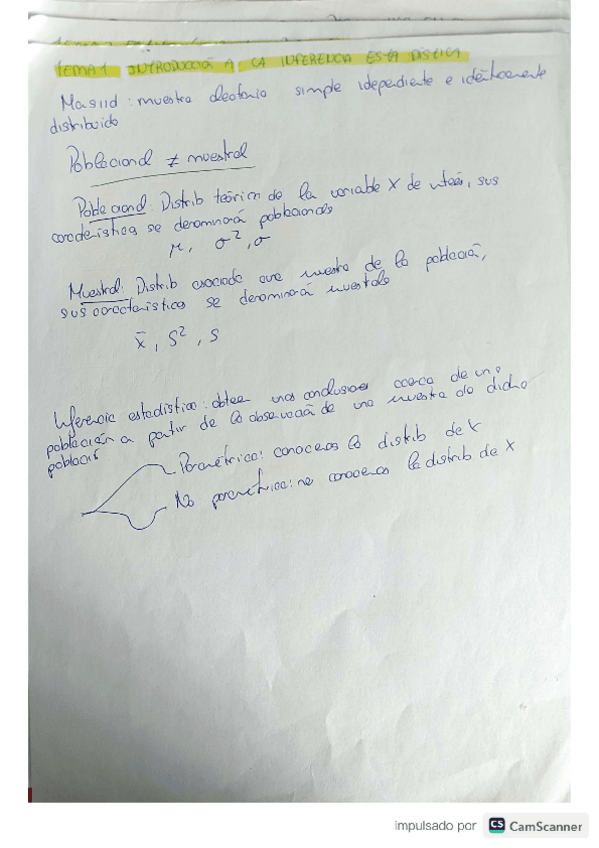 TEMA 1 INTRODUCCIÓ A LA INFERENCIA ESTADÍSTICA
Masiid : muestra aleatoria simple idependiente e idénticamente
distribuido
Poblacional ≠ muestral
Poblacional: Distrib teórica de la variable X de interés, sus
características se denominará poblacionales
μ, σ², σ
Muestral: Distrib asociada una muestra de la població,
sus características se denominará muestrales
x̄, S², S
Inferencia estadística: obtener unas conclusiones acerca de una
población a partir de la observació de una muestra de dicha
població
Paramétrica: conocemos la distrib de X
No paramétrica: no conocemos la distrib de X
impulsado por CS CamScanner